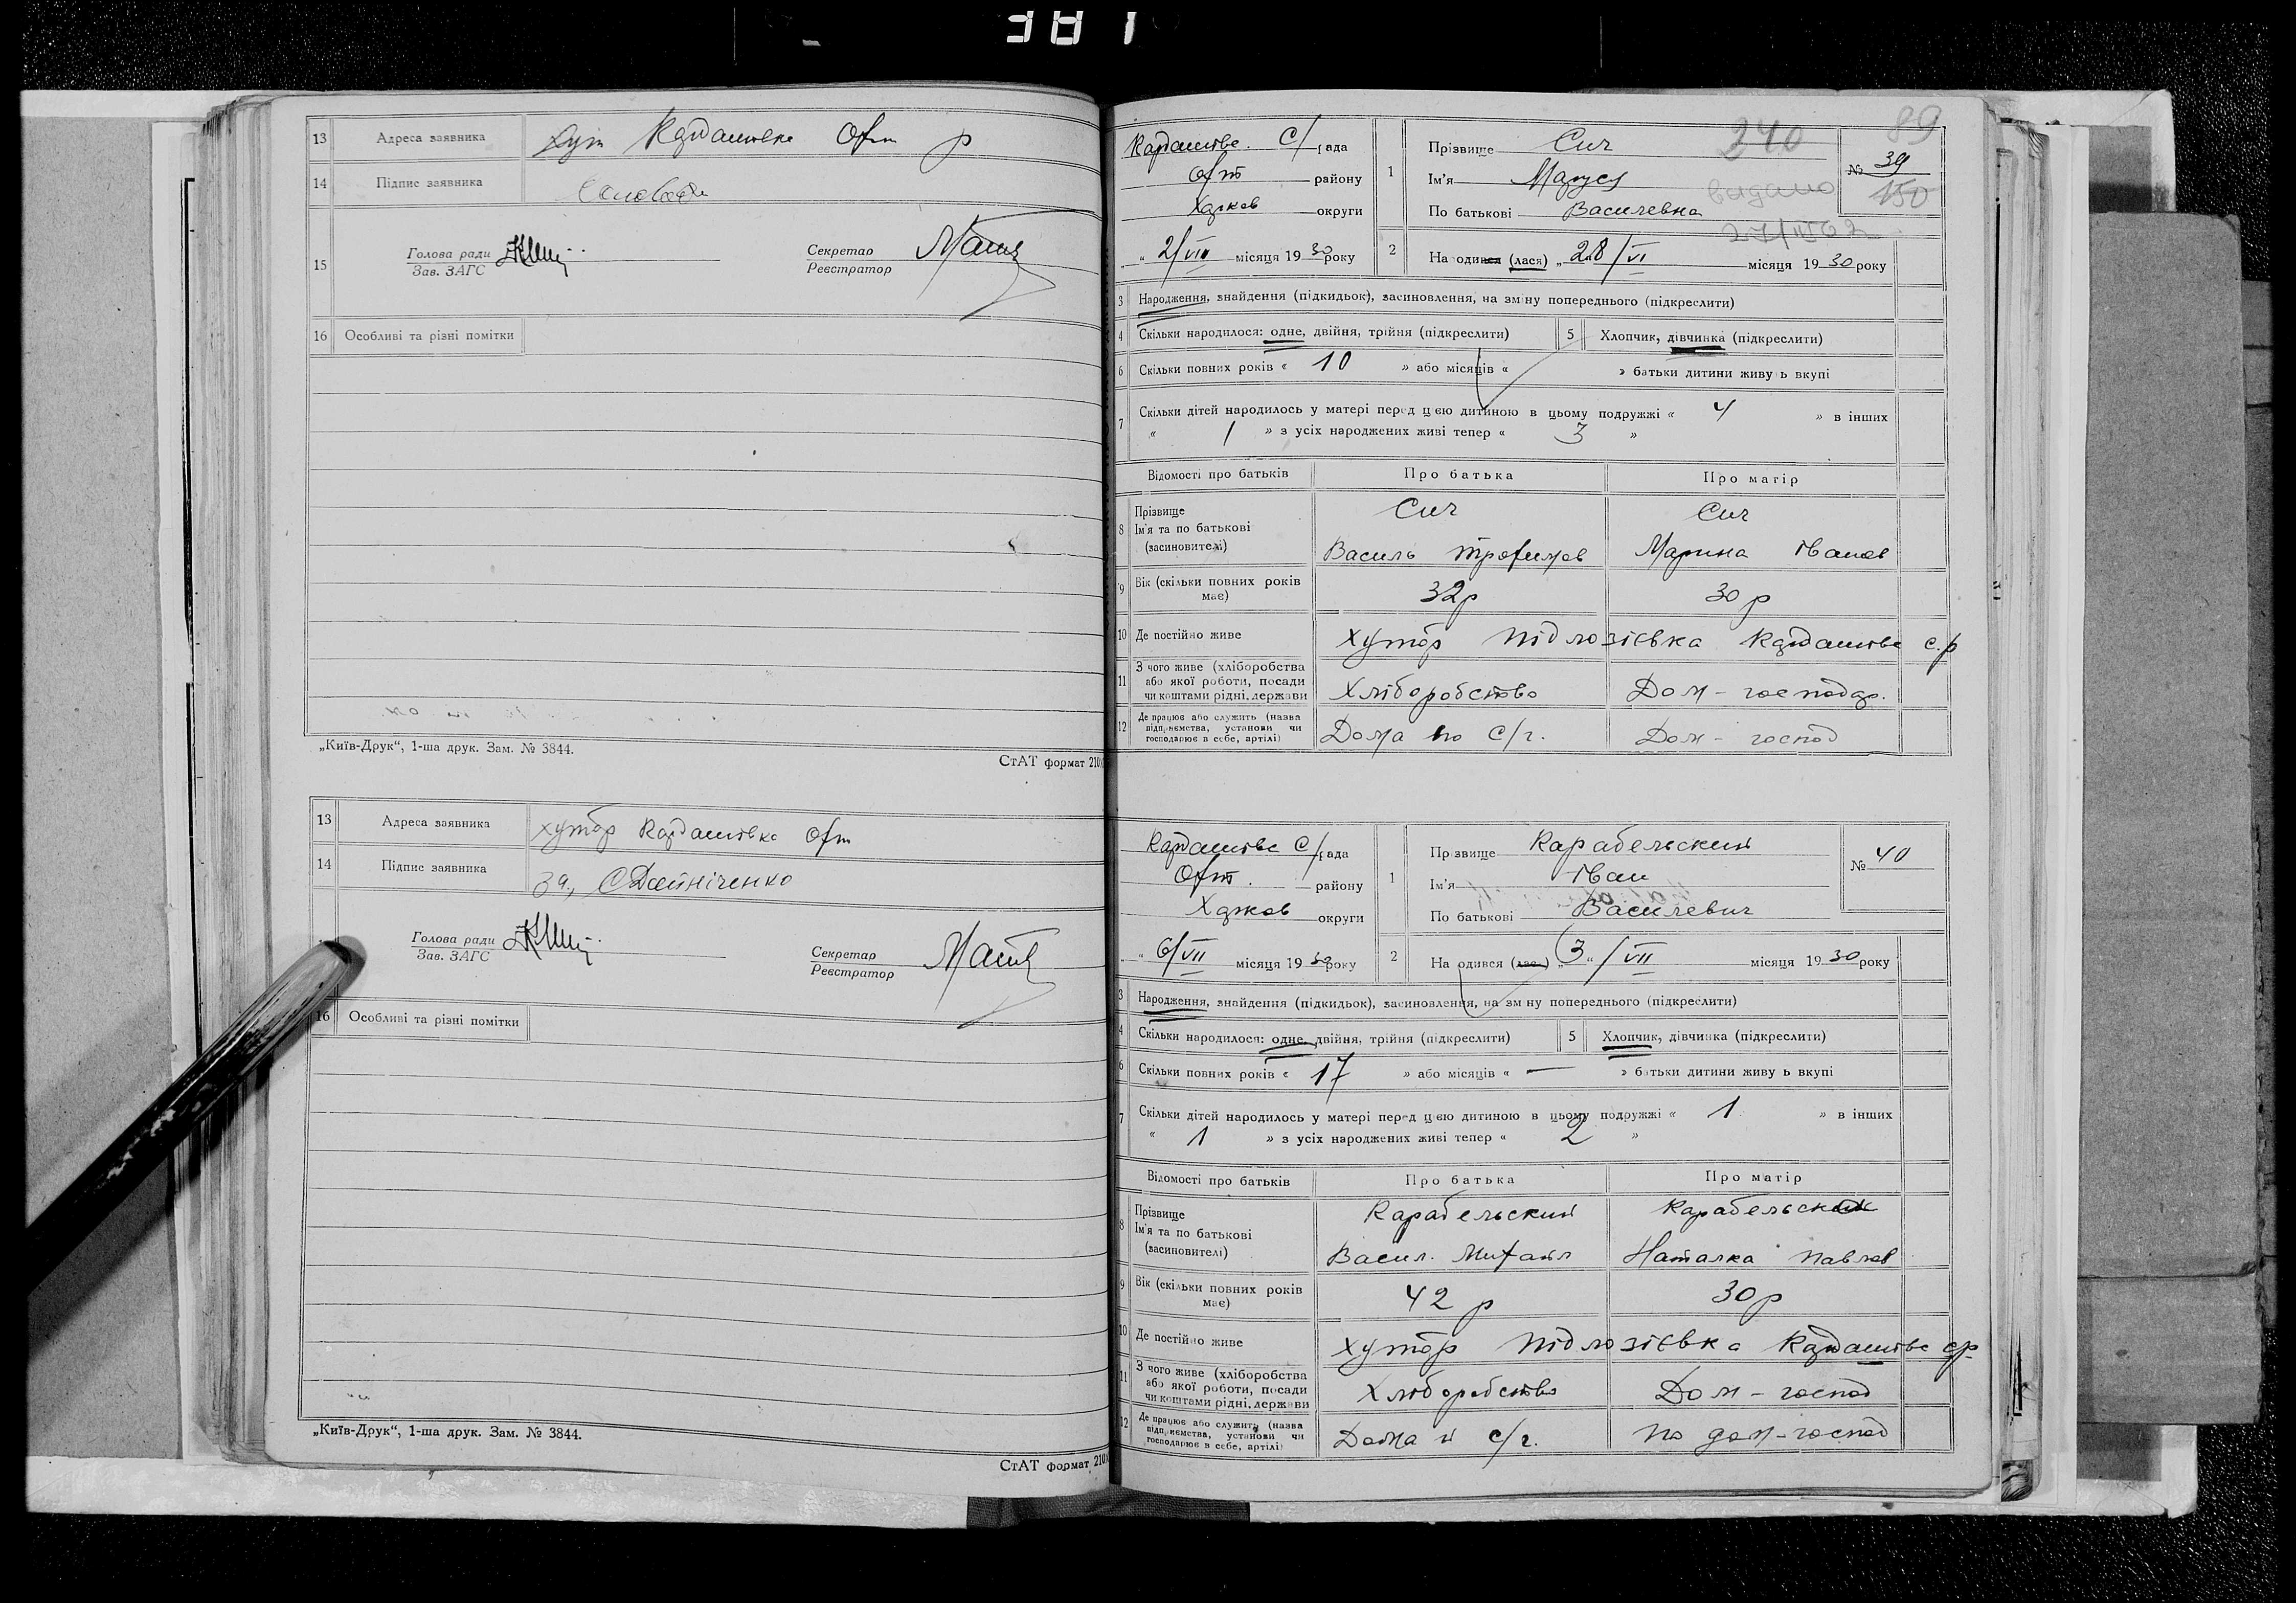 381
13 Адреса заявника хут Кардашівка Охт р
14 Підпис заявника
15 Голова ради
Зав. ЗАГС
Секретар
Реєстратор
16 Особливі та різні помітки
„Київ-Друк“, 1-ша друк. Зам. № 3844.
СтАТ формат 210
13 Адреса заявника хутор Кардашівка Охт
14 Підпис заявника за, С Дейніченко
Голова ради
Зав. ЗАГС
Секретар
Реєстратор
16 Особливі та різні помітки
„Київ-Друк“, 1-ша друк. Зам. № 3844.
СтАТ формат 210
89
240
Кардашівс. С/рада
Охт району
Харков округи
„ 2/VII місяця 1930 року
1 Прізвище Сич
Ім'я Маруся
По батькові Василевна
№ 39
150
видано
2 Народився (лася) „28/VI місяця 1930 року
3 Народження, знайдення (підкидьок), засиновлення, на зміну попереднього (підкреслити)
4 Скільки народилося: одне, двійня, трійня (підкреслити) 5 Хлопчик, дівчинка (підкреслити)
6 Скільки повних років « 10 » або місяців « » батьки дитини живуть вкупі
7 Скільки дітей народилось у матері перед цією дитиною в цьому подружжі « 4 » в інших
« 1 » з усіх народжених живі тепер « 3 »
Відомості про батьків Про батька Про матір
8 Прізвище
Ім'я та по батькові
(засиновителі)
Сич Сич
Василь Трофимов Марина Іванов
9 Вік (скільки повних років має) 32 р 30 р
10 Де постійно живе Хутор Підлозіївка Кардашівс с.р
11 З чого живе (хліборобства або якої роботи, посади чи коштами рідні, держави Хліборобство Дом - господар.
12 Де працює або служить (назва підприємства, установи чи господарює в себе, артілі) Дома по С/г. Дом - господ
Кардашівс С/рада
Охт. району
Харков округи
„ 6/VII місяця 1930 року
1 Прізвище Карабельский
Ім'я Іван
По батькові Василевич
№ 40
2 Народився (лася) „3“/VII місяця 1930 року
3 Народження, знайдення (підкидьок), засиновлення, на зміну попереднього (підкреслити)
4 Скільки народилося: одне, двійня, трійня (підкреслити) 5 Хлопчик, дівчинка (підкреслити)
6 Скільки повних років « 17 » або місяців « — » батьки дитини живуть вкупі
7 Скільки дітей народилось у матері перед цією дитиною в цьому подружжі « 1 » в інших
« 1 » з усіх народжених живі тепер « 2 »
Відомості про батьків Про батька Про матір
8 Прізвище
Ім'я та по батькові
(засиновителі)
Карабельский
Васил. Михайл Наталка Павлов
9 Вік (скільки повних років має) 42 р 30 р
10 Де постійно живе Хутор Підлозієвка Кардашівс ср
11 З чого живе (хліборобства або якої роботи, посади чи коштами рідні, держави Хліборобство Дом - господ
12 Де працює або служить (назва підприємства, установи чи господарює в себе, артілі) Дома С/г. по дом-господ